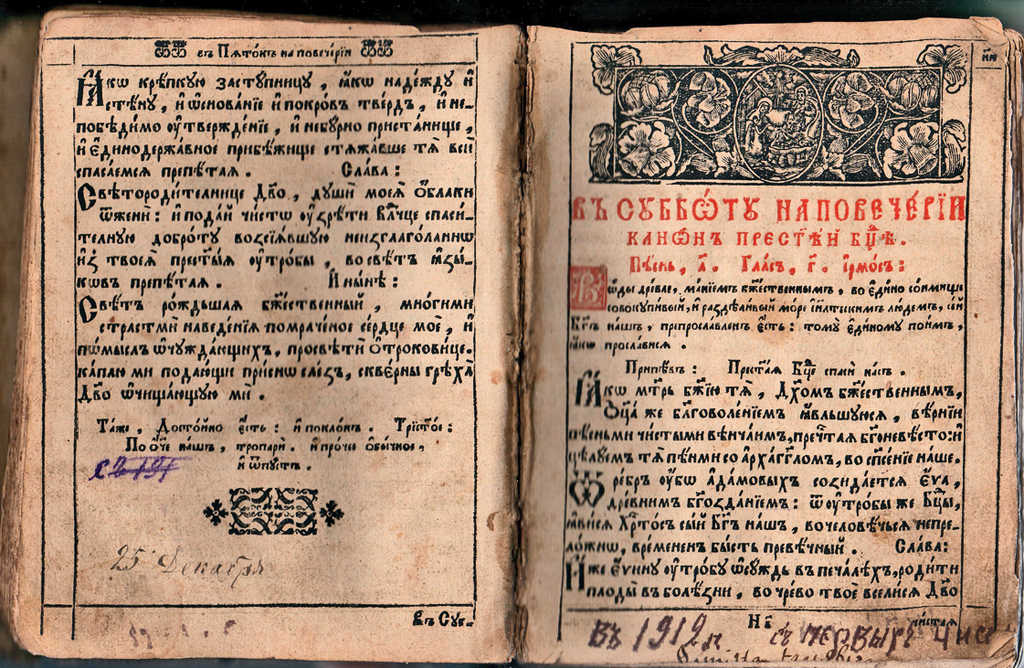 въ Пѧто́къ на повече́рїи
Ꙗ҆́кѡ крѣ́пкꙋю застꙋ́пницꙋ, ꙗ҆́кѡ наде́ждꙋ и҆
стѣ́нꙋ, и҆ ѡ҆снова́нїе и҆ покро́въ тве́рдъ, и҆ не-
побѣди́мо ᲂу҆твержде́нїе, и҆ небꙋ́рно приста́нище,
и҆ є҆динодержа́вное прибѣ́жище стѧжа́вше тѧ̀ всѝ
спаса́емсѧ препѣ́таѧ. Сла́ва:
Свѣтороди́телнице Дв҃о, дꙋшѝ моеѧ̀ ѡ҆́блаки
ѿженѝ: и҆ пода́й чи́стѡ ᲂу҆зрѣ́ти вл҃чце спаси́-
телнꙋю добро́тꙋ возсїѧ́вшꙋю неизглаго́ланнѡ
и҆з̾ твоеѧ̀ прест҃ы́ѧ ᲂу҆тро́бы, во свѣ́тъ ꙗ҆зы́-
кѡвъ препѣ́таѧ. И҆ ны́нѣ:
Свѣ́тъ ро́ждьшаѧ бж҃е́ственный, мно́гими
страстьмѝ наведе́нїѧ помраче́ное се́рдце моѐ, и҆
по́мыслъ ѿчꙋжда́ющихъ, просвѣтѝ ѻ҆трокови́це.
ка́плю ми пода́ющи при́снѡ сле́зъ, скве́рны грѣха̀
Дв҃о ѡ҆чища́ющꙋю ми.
Та́же, Досто́йно є҆́сть: и҆ покло́нъ. Трист҃о́е:
По ѻ҆́ч҃е на́шъ, тропарѝ. и҆ про́чее ѻ҆бы́чное,
и҆ ѿпꙋ́стъ.
25 Декабря
Въ Сꙋб.
ВЪ СꙊББѠ́ТꙊ НА ПОВЕЧЕ́РЇИ
КАНѠ́НЪ ПРЕСТ҃Ѣ́Й БЦ҃Ѣ.
Пѣ́снь, а҃. Гла́съ, г҃. І҆рмо́съ:
Во́ды дре́вле, ма́нїемъ бж҃е́ственнымъ, во є҆ди́но со́нмище
совокꙋпи́вый, и҆ раздѣли́вый мо́ре і҆и҃лтьскимъ лю́демъ, се́й
Бг҃ъ на́шъ, препросла́вленъ є҆́сть: томꙋ̀ є҆ди́номꙋ пои́мъ,
ꙗ҆́кѡ просла́висѧ.
Припѣ́въ: Прест҃а́ѧ Бц҃е спасѝ на́съ.
Ꙗ҆́кѡ мт҃рь бж҃їю тѧ̀, Дх҃омъ бж҃е́ственнымъ,
Ѻ҆ц҃а́ же бл҃говоле́нїемъ ꙗ҆́вльшꙋюсѧ, вѣ́рнїи
пѣ́сньми чи́стыми вѣнча́имъ, пречⷭ҇таѧ бг҃оневѣ́сто: и҆
цѣлꙋ́емъ тѧ̀ пѣ́ньми со а҆рха́гг҃ломъ, во сп҃се́нїе на́ше.
Ѿ ре́бръ ᲂу҆́бѡ а҆да́мовыхъ созида́етсѧ Є҆́ѵа,
дре́внимъ бг҃озда́нїемъ: ѿ ᲂу҆тро́бы же Бц҃ы,
ꙗ҆ви́сѧ Хрⷭ҇то́съ сы́й Бг҃ъ на́шъ, во человѣ́чьсѧ непре-
ло́жнѡ, вре́мененъ бы́сть превѣ́чный. Сла́ва:
И҆́же є҆́ѵинꙋ ᲂу҆тро́бꙋ ѡ҆сꙋ́ждь въ печа́лехъ, роди́ти
плоды̀ въ болѣ́зни, во чре́во твоѐ всели́сѧ Дв҃о
чи́стаѧ
Въ 1919 г
съ первыхъ чис